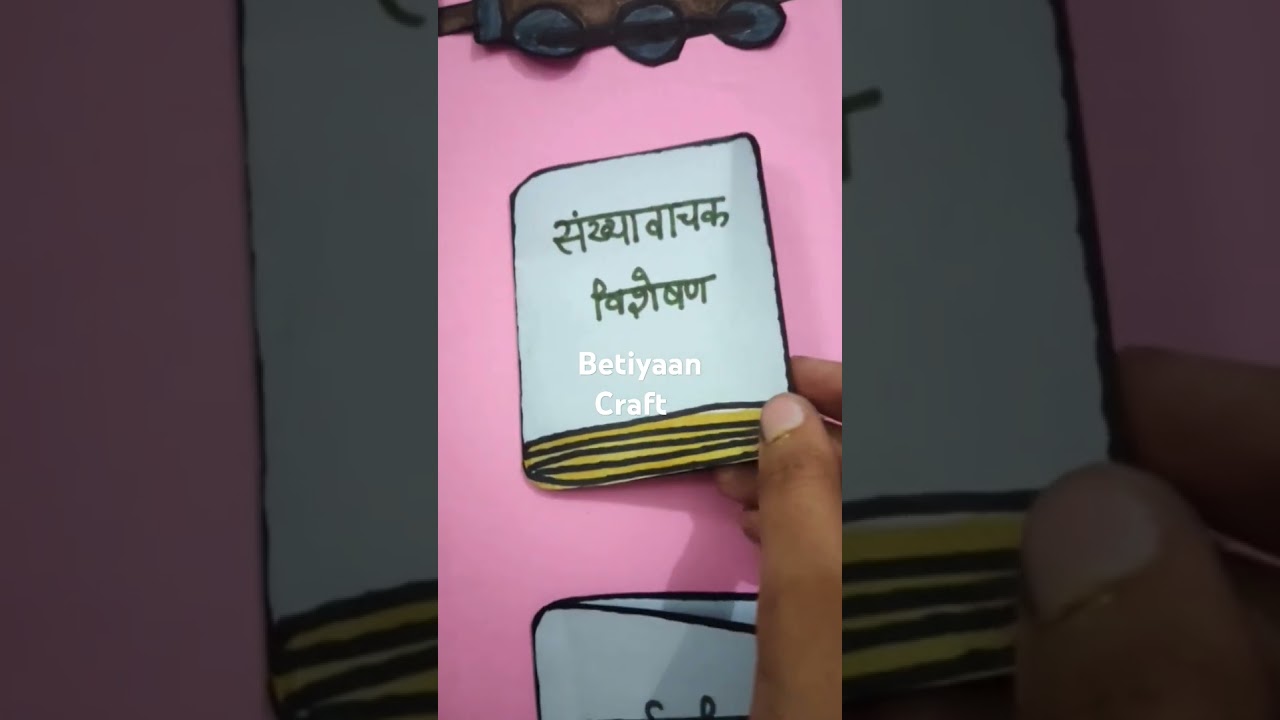 संख्यावाचक
विशेषण
Betiyaan
Craft